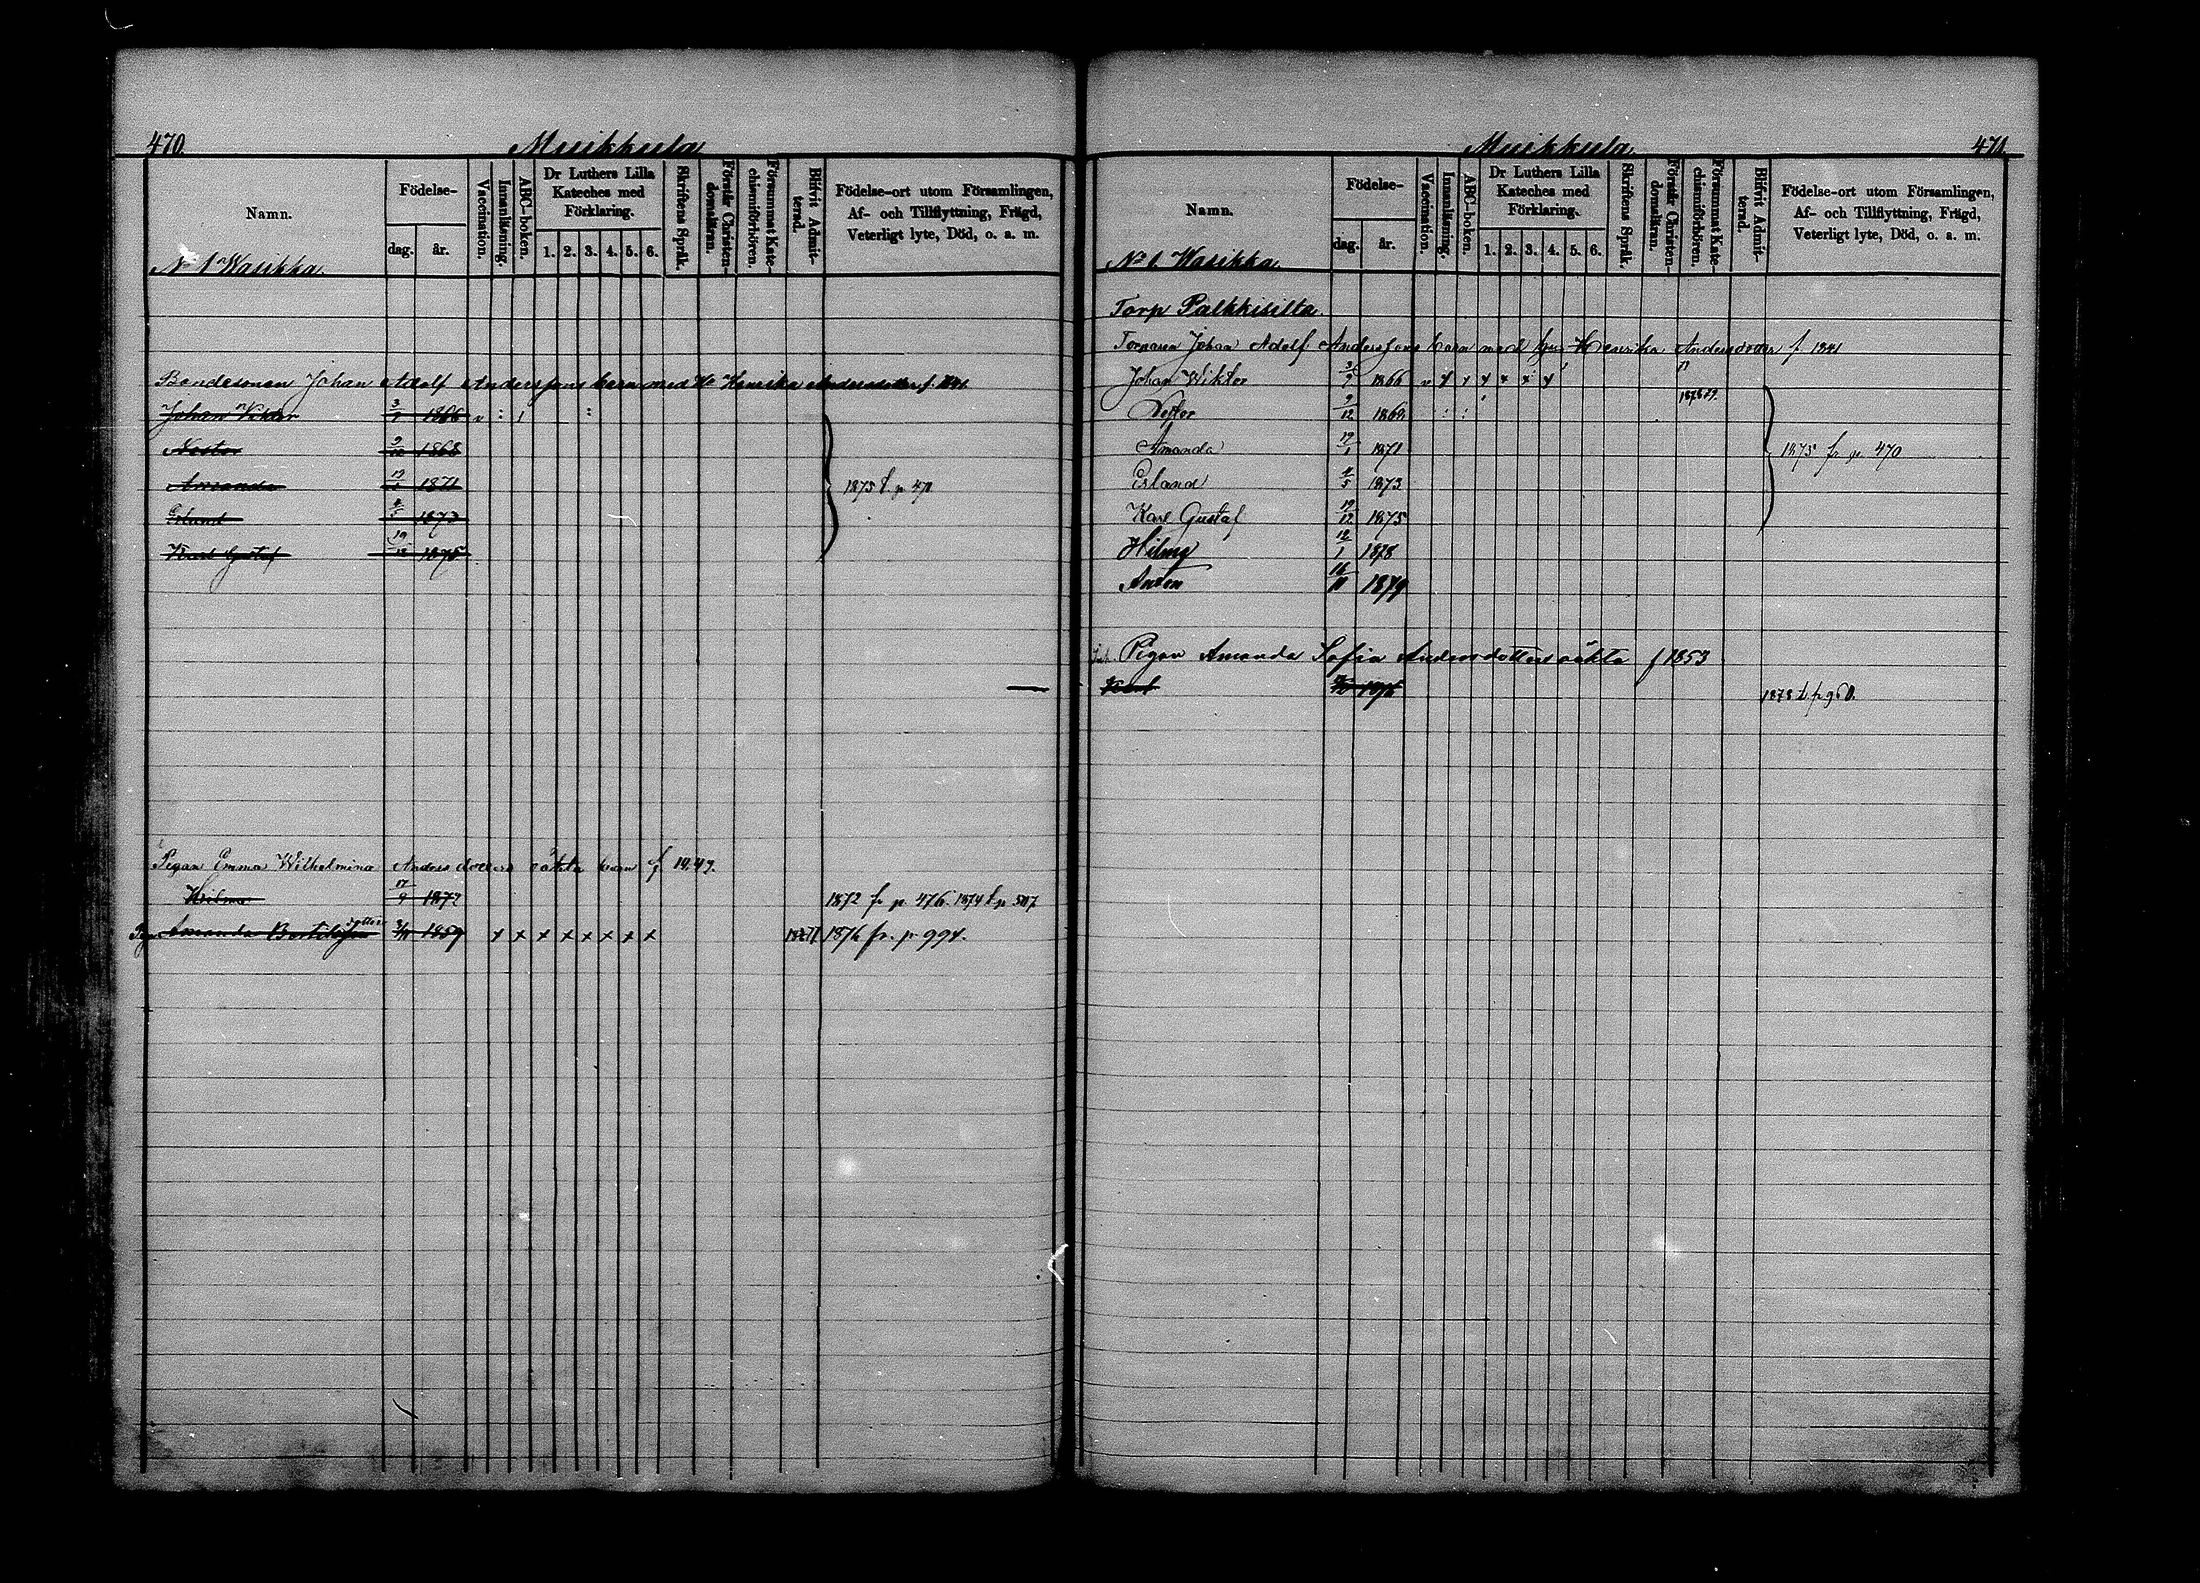 470.
Muikkula
Namn.
Födelse-
dag.
år.
Vaccination.
Innanläsning.
ABC-boken.
Dr Luthers Lilla
Kateches med
Förklaring.
1. 2. 3. 4. 5. 6.
Skriftens Språk.
Förstår Christen-
domsläran.
Försummat Kate-
chismiförhören.
Blifvit Admit-
terad.
Födelse-ort utom Församlingen,
Af- och Tillflyttning, Frägd,
Veterligt lyte, Död, o. a. m.
No 1 Wasikka.
Bondesonen Johan Adolf Anderssons barn med Ha Henrika Andersdotter f. 1841
Johan Viktor 3/9 1866 v : 1 :
Nestor 1868
Amanda 19/1 1871
1875 t. p. 471
Erlund 4/5 1873
Karl Gustaf 19/12 1875
Pigan Emma Wilhelmina Andersdotters oäkta barn f 1849.
Hilma 17/9 1872 1872 fr p. 476. 1874 t. p 507
Amanda dotter 1859 x x x x x x x x 1876 fr. p. 994.
Muikkula
471
Namn.
Födelse-
dag.
år.
Vaccination.
Innanläsning.
ABC-boken.
Dr Luthers Lilla
Kateches med
Förklaring.
1. 2. 3. 4. 5. 6.
Skriftens Språk.
Förstår Christen-
domsläran.
Försummat Kate-
chismiförhören.
Blifvit Admit-
terad.
Födelse-ort utom Församlingen,
Af- och Tillflyttning, Frägd,
Veterligt lyte, Död, o. a. m.
No 1. Wasikka.
Torp Palkkisilta.
Torparen Johan Adolf Anderssons barn med hu Henrika Andersdotter f 1841
Johan Wiktor 3/9 1866 v x x x x x x
1878 79.
Nestor 9/12 1868 : :
Amanda 19/1 1871 1875 fr p. 470
Erland 4/5 1873
Karl Gustaf 19/12 1875
Hilma 12/1 1878
Anton 16/11 1879
Pigan Amanda Sofia Andersdotters oäkta f 1853
Karl 1878 t. p 960.